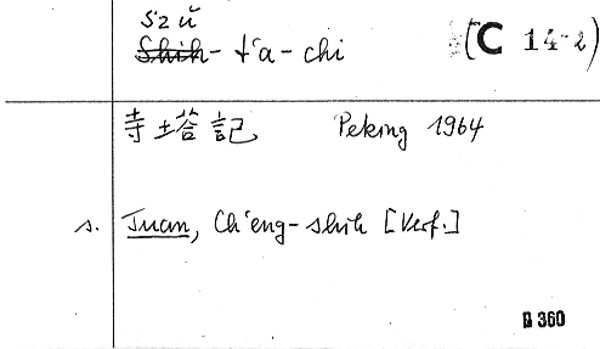 Szŭ
Shih-t'a-chi (C 14-2)
寺塔記 Peking 1964
s. Tuan, Ch'eng-shih [Verf.]
B 360